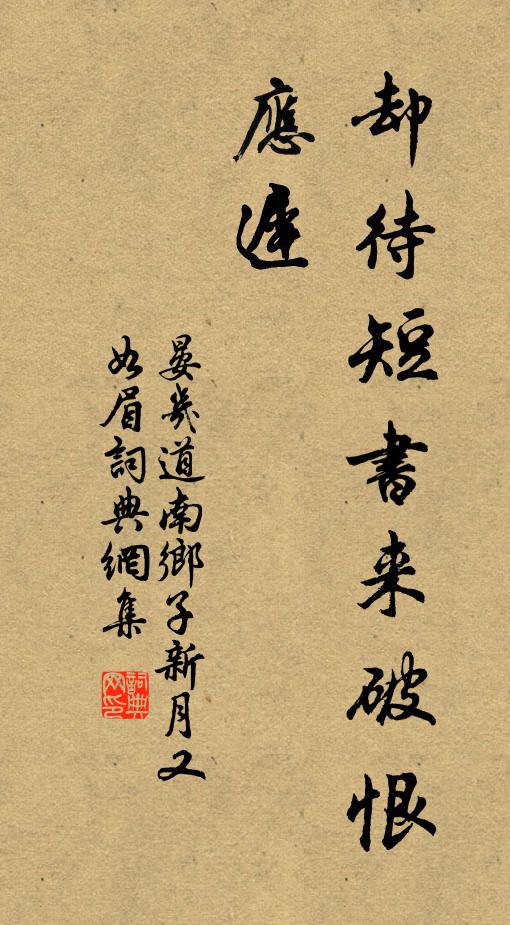 却待短書来破恨
應遲
晏幾道南鄉子新月又
如眉詞典網集
詞典
网印